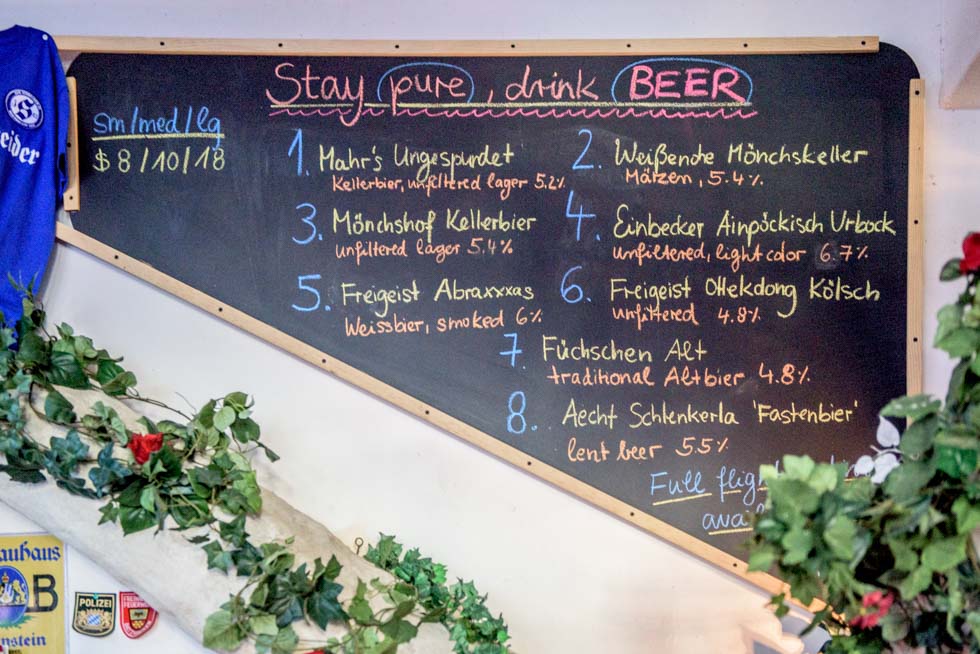 Stay pure, drink BEER
sm/med/lg
$ 8/10/18
1. Mahr's Ungespundet
Kellerbier, unfiltered lager 5.2%
2. Weißenohe Mönchskeller
Märzen, 5.4%
3. Mönchshof Kellerbier
unfiltered lager 5.4%
4. Einbecker Ainpöckisch Urbock
unfiltered, light color 6.7%
5. Freigeist Abraxxxas
Weissbier, smoked 6%
6. Freigeist Ottekdong Kölsch
unfiltered 4.8%
7. Füchschen Alt
traditional Altbier 4.8%
8. Aecht Schlenkerla 'Fastenbier'
lent beer 5.5%
Full
eider
auhaus
B
nstein
POLIZEI